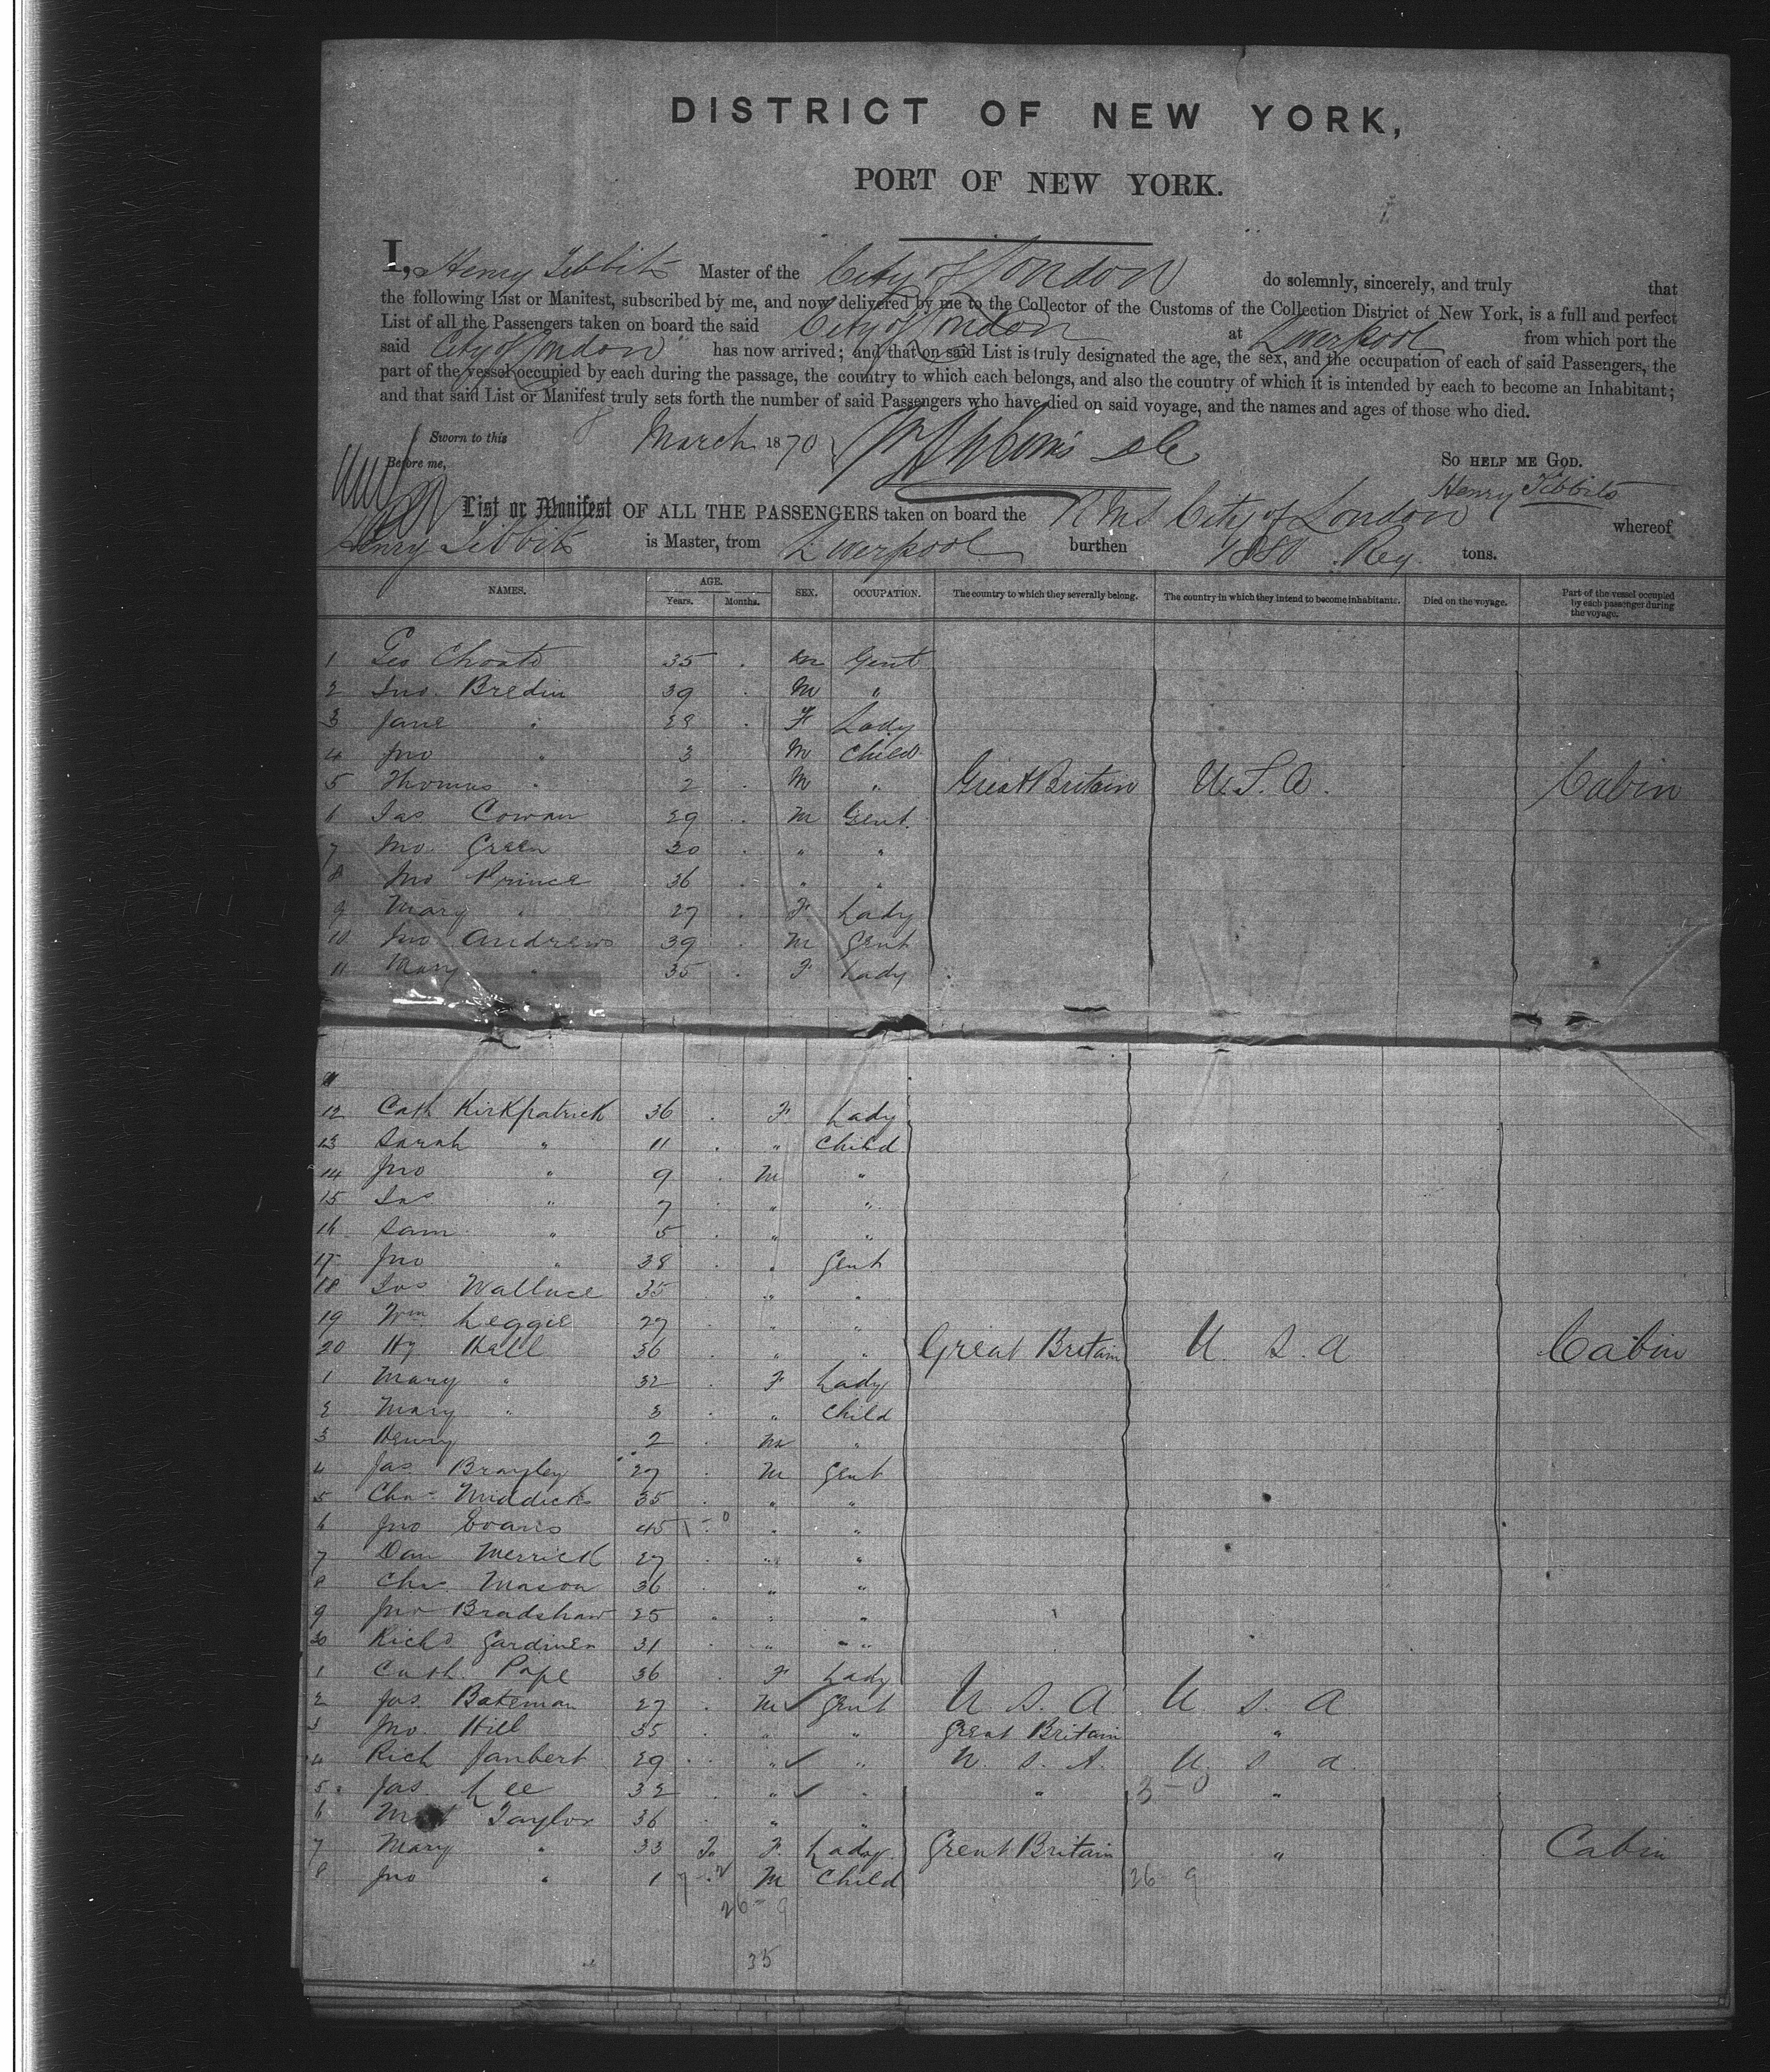 DISTRICT OF NEW YORK,
PORT OF NEW YORK.
I, Henry Tibbits Master of the City of London do solemnly, sincerely, and truly that
the following List or Manifest, subscribed by me, and now delivered by me to the Collector of the Customs of the Collection District of New York, is a full and perfect
List of all the Passengers taken on board the said City of London at Liverpool from which port the
said City of London has now arrived; and that on said List is truly designated the age, the sex, and the occupation of each of said Passengers, the
part of the vessel occupied by each during the passage, the country to which each belongs, and also the country of which it is intended by each to become an Inhabitant;
and that said List or Manifest truly sets forth the number of said Passengers who have died on said voyage, and the names and ages of those who died.
Sworn to this 8 March 1870
Before me, SO HELP ME GOD.
Henry Tibbits
List or Manifest OF ALL THE PASSENGERS taken on board the RMS City of London whereof
Henry Tibbits is Master, from Liverpool burthen 1880 Reg tons.
NAMES. AGE. Years. Months. SEX. OCCUPATION. The country to which they severally belong. The country in which they intend to become inhabitants. Died on the voyage. Part of the vessel occupied by each passenger during the voyage.
1 Geo Choate 35 . m Gent
2 Jno. Bredin 39 . M "
3 Jane " 28 . F Lady
4 Jno " 3 M Child
5 Thomas " 2 . M " Great Britain U.S.A. Cabin
6 Jas Cowan 29 . M Gent.
7 Jno Green 30 . " "
8 Jno Prince 36 . " "
9 Mary " 27 . F Lady
10 Jno Andrews 39 . M Gent
11 Mary " 35 . F Lady
11
12 Cath Kirkpatrick 36 . F Lady
13 Sarah " 11 . " Child
14 Jno " 9 . M "
15 Jas " 7 . " "
16 Sam " 5 . " "
17 Jno " 38 . " Gent
18 Jos Wallace 35 . " "
19 Wm Leggie 27 . " "
20 Hy Hall 36 . " " Great Britain U. S. A Cabin
1 Mary " 32 . F Lady
2 Mary " 3 . " Child
3 Henry 2 . M "
4 Jas. Brayley 27 . M Gent
5 Chas Middicks 35 . " "
6 Jno Evans 45 " "
7 Dan Merrick 27 . " "
8 Chas. Mason 36 . " "
9 Jno Bradshaw 25 . " "
30 Richd Gardiner 31 . " "
1 Cath. Pope 36 . F Lady
2 Jas. Bateman 27 . M Gent U S A U S. A
3 Jno. Hill 35 . " " Great Britain "
4 Rich Janbert 29 . " " U. S. A. U S A.
5 Jas Lee 32 . " " " 3-0 "
6 Taylor 36 . " "
7 Mary " 33 F. Lady Great Britain " Cabin
8 Jno " 1 M Child 26 9
26-9
35